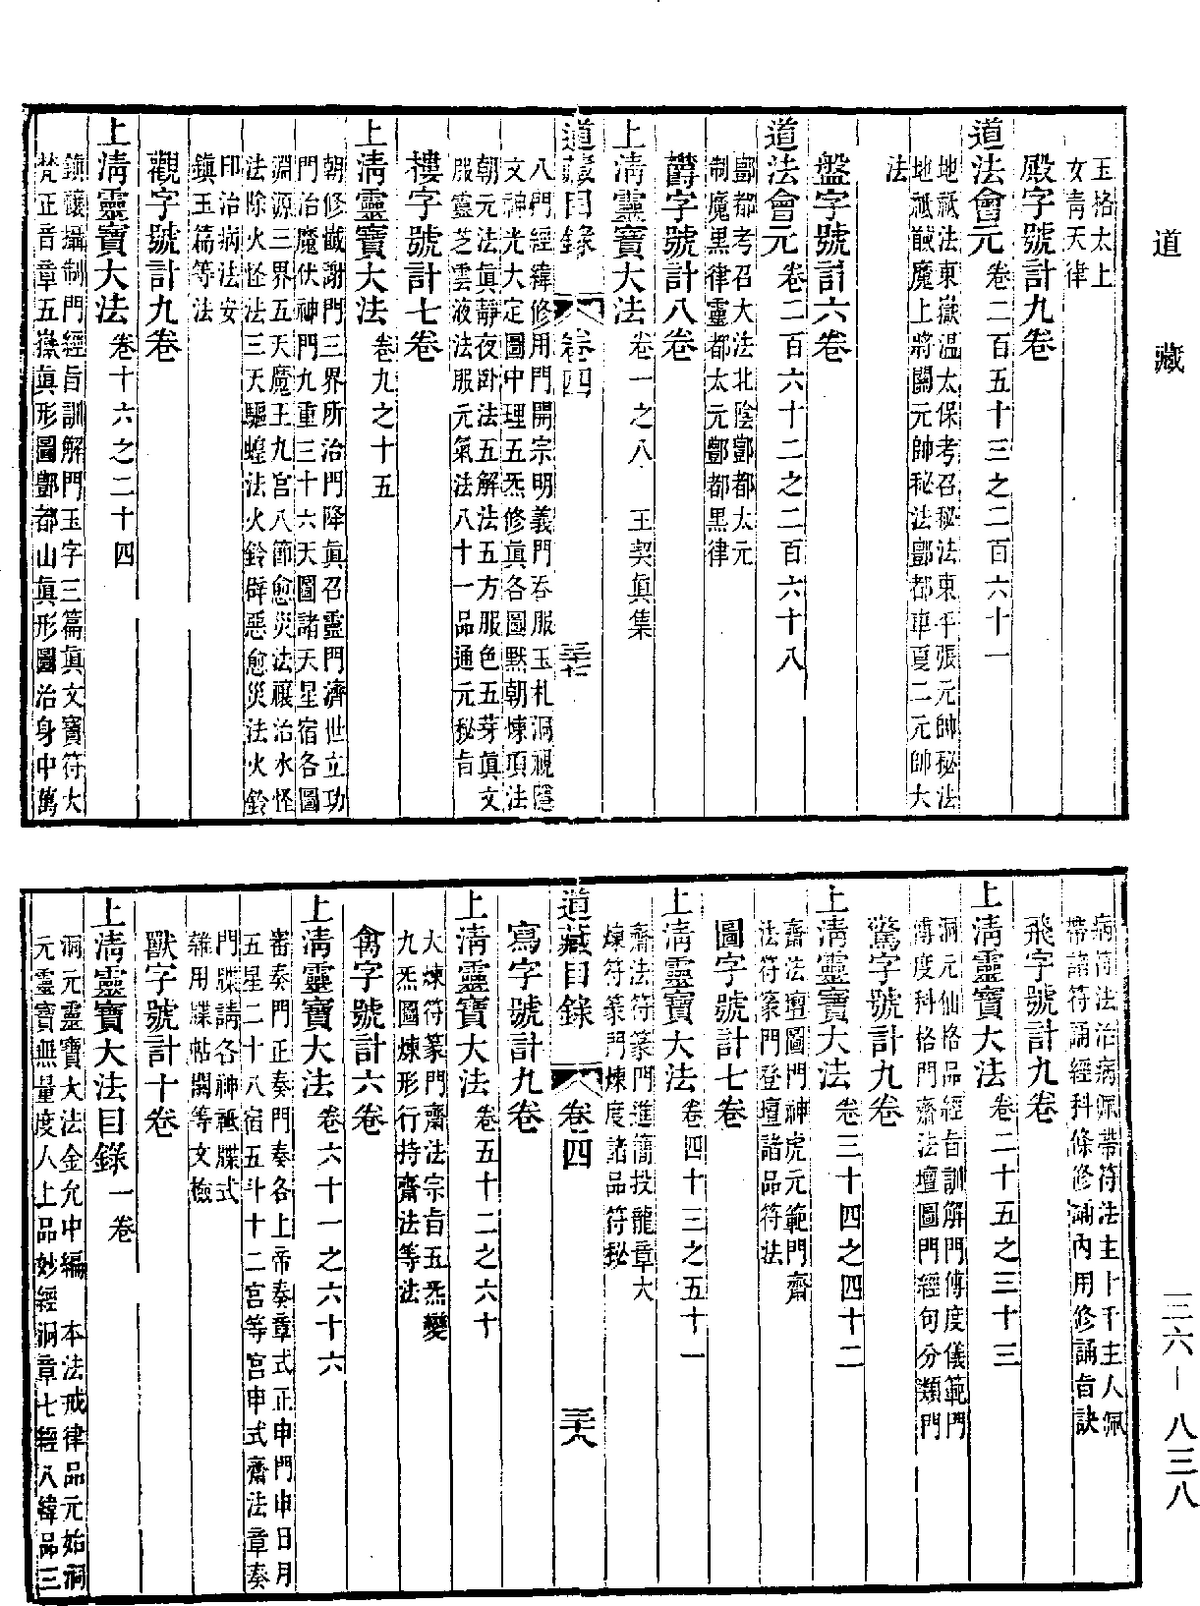 道藏
玉格太上
女青天律
殿字號計九卷
道法會元卷二百五十三之二百六十一
地祇法東嶽温太保考召秘法東平張元帥秘法
地祇馘魔上將關元帥秘法酆都車夏二元帥大
法
盤字號計六卷
道法會元卷二百六十二之二百六十八
酆都考召大法北陰酆都太元
制魔黑律靈都太元酆都黑律
鬱字號計八卷
上淸靈寶大法卷一之八 王契眞集
道藏目錄 卷四 三十七
八門經緯修用門開宗明義門吞服玉札洞視隱
文神光大定圖中理五炁修眞各圖黙朝煉項法
朝元法眞靜夜卧法五解法五方服色五芽眞文
服靈芝雲液法服元氣法八十一品通元秘旨
樓字號計七卷
上淸靈寶大法卷九之十五
朝修懺謝門三界所治門降眞召靈門濟世立功
門治魔伏神門九重三十六天圖諸天星宿各圖
淵源三界五天魔王九宮八節愈災法禳治水怪
法除火怪法三天驅蝗法火鈴辟惡愈災法火鈴
印治病法安
鎭玉篇等法
觀字號計九卷
上淸靈寶大法卷十六之二十四
鎭禳攝制門經旨訓解門玉字三篇眞文寶符大
梵正音章五嶽眞形圖酆都山眞形圖治身中萬
病符法治病佩帶符法主卜千主人佩
帶諸符誦經科條修誦內用修誦旨訣
飛字號計九卷
上淸靈寶大法卷二十五之三十三
洞元仙格品經旨訓解門傳度儀範門
傳度科格門齋法壇圖門經句分類門
驚字號計九卷
上淸靈寶大法卷三十四之四十二
齋法壇圖門神虎元範門齋
法符篆門登壇諸品符法
圖字號計七卷
上淸靈寶大法卷四十三之五十一
齋法符篆門進簡投龍章大
煉符篆門煉度諸品符秘
道藏目錄 卷四 三十八
寫字號計九卷
上淸靈寶大法卷五十二之六十
大煉符篆門齋法宗旨五炁變
九炁圖煉形行持齋法等法
禽字號計六卷
上淸靈寶大法卷六十一之六十六
審奏門正奏門奏各上帝奏章式正申門申日月
五星二十八宿五斗十二宮等宮申式齋法章奏
門牒請各神祗牒式
雜用牒帖關等文檢
獸字號計十卷
上淸靈寶大法目錄一卷
洞元靈寶大法金允中編 本法戒律品元始洞
元靈寶無量度人上品妙經洞章七經八緯品三
三六—八三八